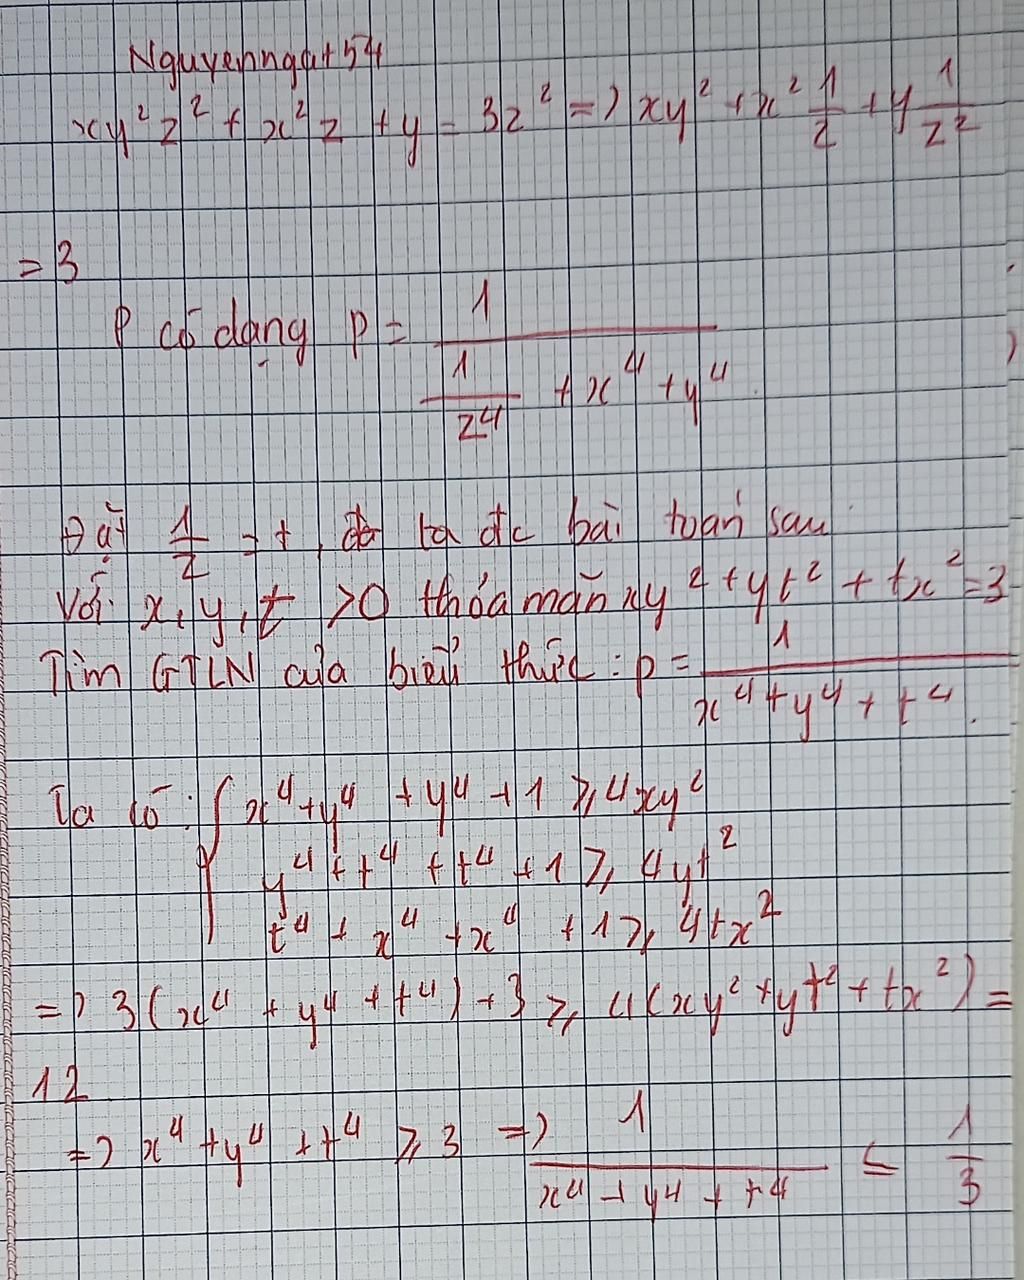 Nguyenngat54
xy²z² + x²z + y = 3z² => xy² + x² 1/z + y 1/z²
= 3
P có dạng P = 1/(1/z⁴ + x⁴ + y⁴)
Đặt 1/z = t, ta đc bài toán sau
Với x, y, t >0 thỏa mãn xy² + yt² + tx² = 3
Tìm GTLN của biểu thức : P = 1/(x⁴ + y⁴ + t⁴).
Ta có : { x⁴ + y⁴ + y⁴ + 1 ≥ 4xy²
y⁴ + t⁴ + t⁴ + 1 ≥ 4yt²
t⁴ + x⁴ + x⁴ + 1 ≥ 4tx²
=> 3(x⁴ + y⁴ + t⁴) + 3 ≥ 4(xy² + yt² + tx²) =
12
=> x⁴ + y⁴ + t⁴ ≥ 3 => 1/(x⁴ + y⁴ + t⁴) ≤ 1/3